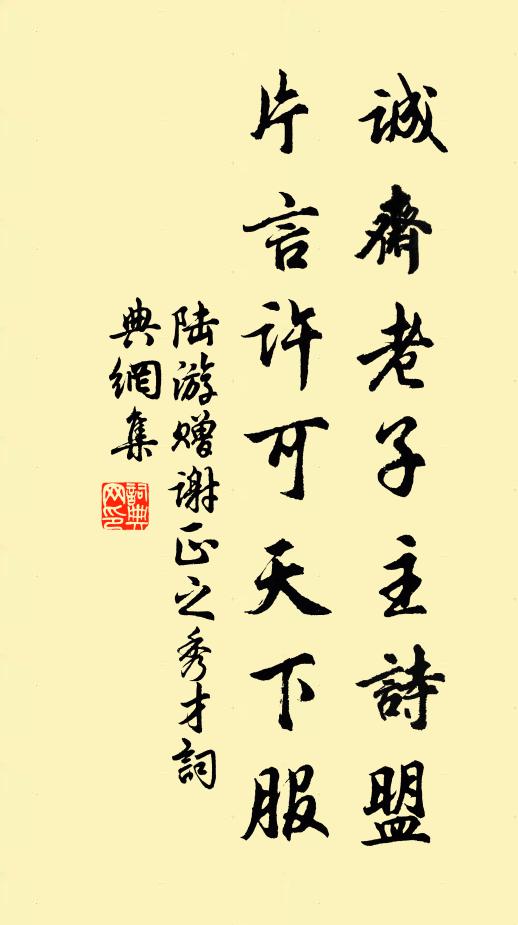 誠齋老子主詩盟
片言許可天下服
陆游赠谢正之秀才詞
典網集
詞典网印